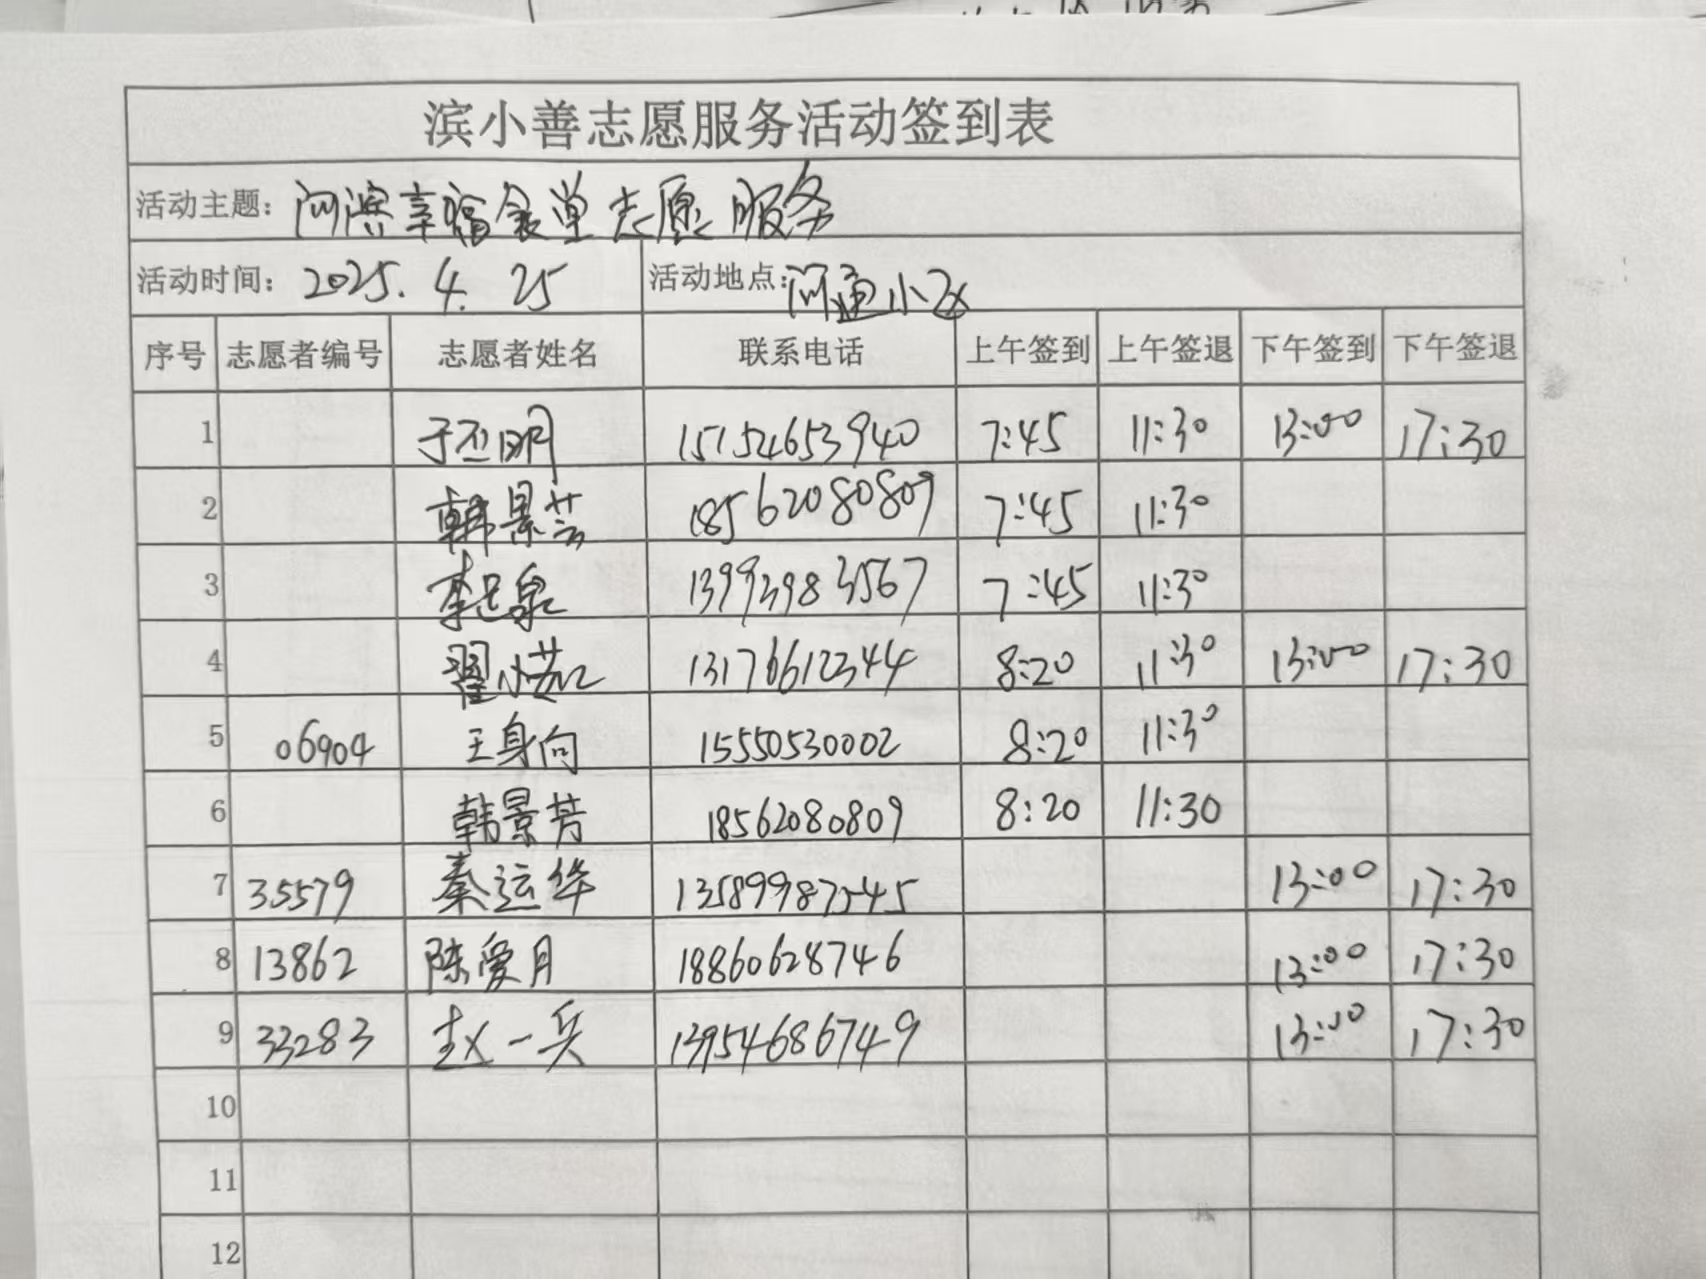 滨小善志愿服务活动签到表
活动主题：河滨幸福食堂志愿服务
活动时间：2025.4.25 活动地点：河通小区
序号 志愿者编号 志愿者姓名 联系电话 上午签到 上午签退 下午签到 下午签退
1 于丕明 15154653940 7:45 11:30 13:00 17:30
2 韩景芸 18562080809 7:45 11:30
3 13993983567 7:45 11:30
4 翟小茹 13176612344 8:20 11:30 13:00 17:30
5 06904 王身向 15550530002 8:20 11:30
6 韩景芳 18562080809 8:20 11:30
7 35579 秦运华 13589987545 13:00 17:30
8 13862 陈爱月 18860628746 13:00 17:30
9 33283 赵一兵 13954686749 13:00 17:30
10
11
12